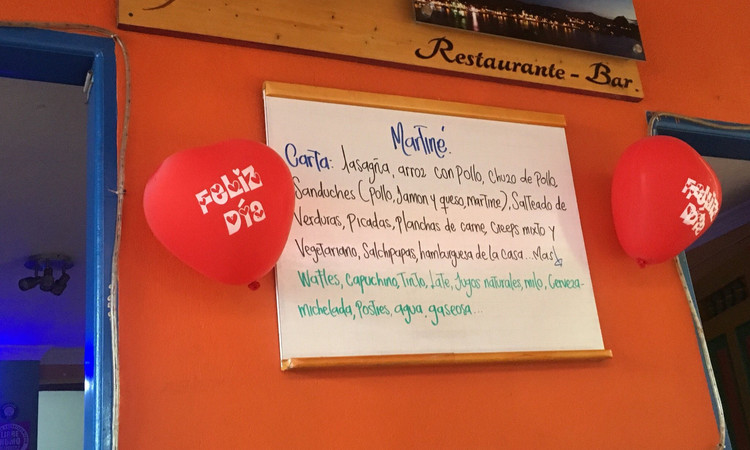 Restaurante - Bar.
Martiné.
Carta: lasagña, arroz con Pollo, Chuzo de Pollo,
Sanduches (Pollo, Jamon y queso, martine), Salteado de
Verduras, Picadas, Planchas de carne, Creeps mixto y
Vegetariano, Salchipapas, hamburguesa de la Casa... Mas
Wafles, Capuchino, Tinto, Late, Jugos naturales, milo, Cerveza-
michelada, Postres, agua, gaseosa...
FELIZ
DÍA
FELIZ
DÍA